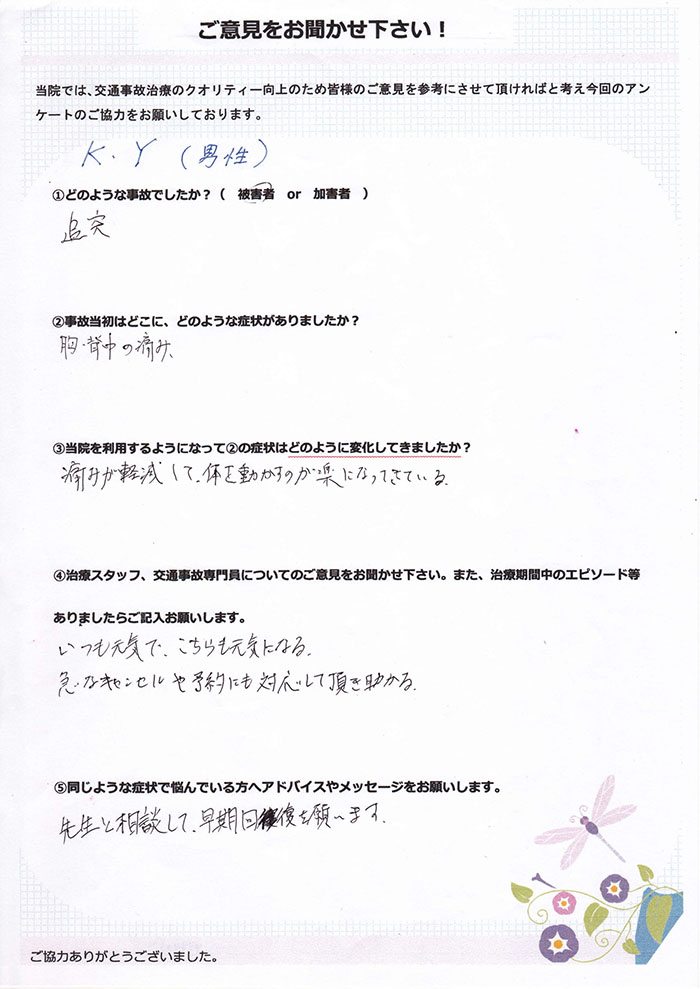 ご意見をお聞かせ下さい！
当院では、交通事故治療のクオリティー向上のため皆様のご意見を参考にさせて頂ければと考え今回のアン
ケートのご協力をお願いしております。
K.Y (男性)
①どのような事故でしたか？（　被害者　or　加害者　）
追突
②事故当初はどこに、どのような症状がありましたか？
胸・背中の痛み、
③当院を利用するようになって②の症状はどのように変化してきましたか？
痛みが軽減して、体を動かすのが楽になってきている。
④治療スタッフ、交通事故専門員についてのご意見をお聞かせ下さい。また、治療期間中のエピソード等
ありましたらご記入お願いします。
いつも元気で、こちらも元気になる。
急なキャンセルや予約にも対応して頂き助かる。
⑤同じような症状で悩んでいる方へアドバイスやメッセージをお願いします。
先生と相談して、早期回復を願います。
ご協力ありがとうございました。